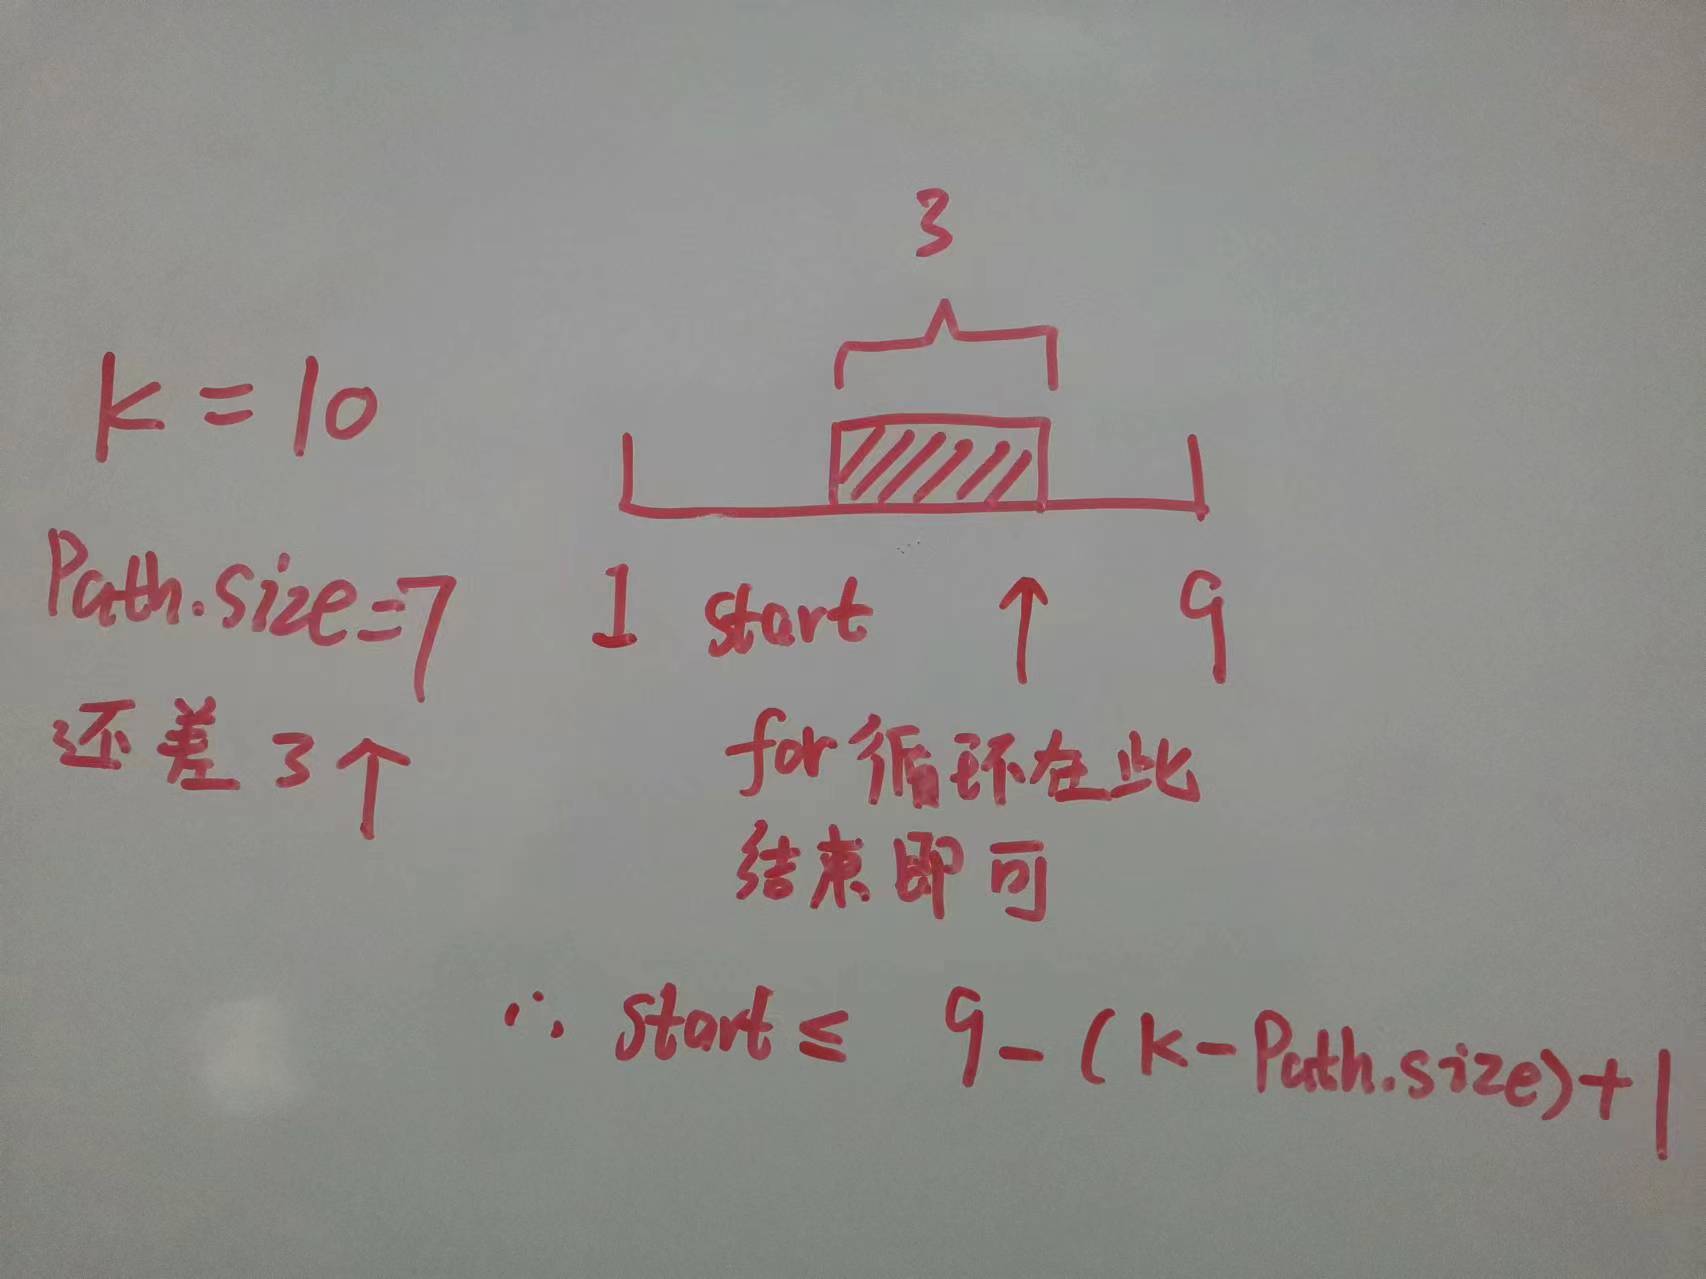 3
k=10
Path.size=7
还差3个
1 start ↑ 9
for循环在此
结束即可
∴ start≤ 9-(k-Path.size)+1